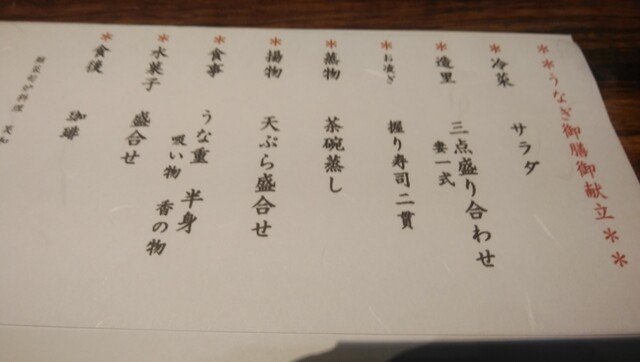 **うなぎ御膳御献立**
*冷菜
サラダ
*造里
三点盛り合わせ
妻一式
*お凌ぎ
握り寿司二貫
*蒸物
茶碗蒸し
*揚物
天ぷら盛合せ
*食事
うな重 半身
吸い物 香の物
*水菓子
盛合せ
*食後
珈琲